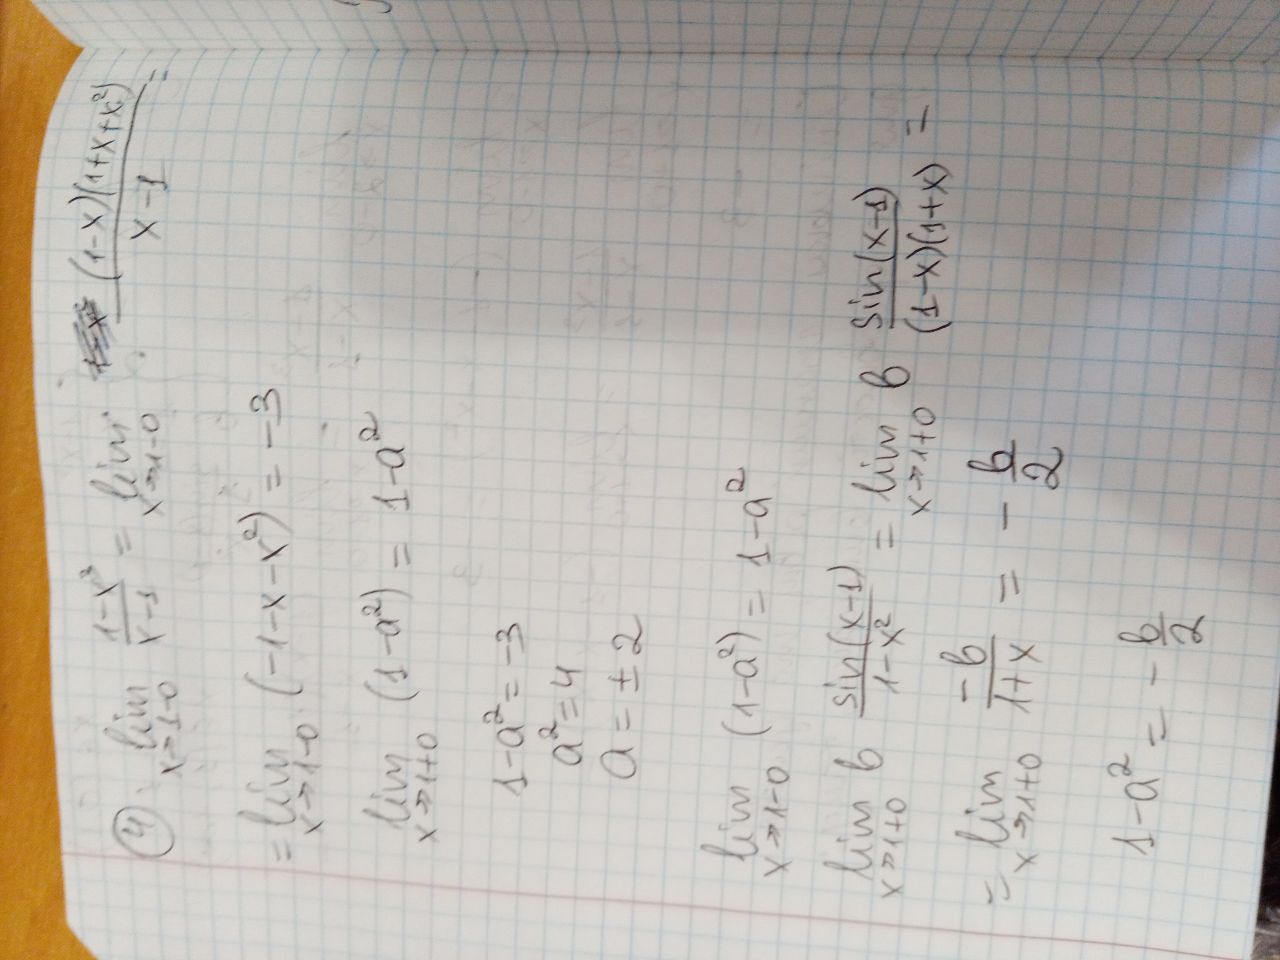 4. lim x→1-0 (1-x³)/(x-1) = lim x→1-0 (1-x)(1+x+x²)/(x-1) =
= lim x→1-0 (-1-x-x²) = -3
lim x→1+0 (1-a²) = 1-a²
1-a² = -3
a² = 4
a = ± 2
lim x→1-0 (1-a²) = 1-a²
lim x→1+0 в sin(x-1)/(1-x²) = lim x→1+0 в sin(x-1)/((1-x)(1+x)) =
= lim x→1+0 -в/(1+x) = - в/2
1-a² = - в/2